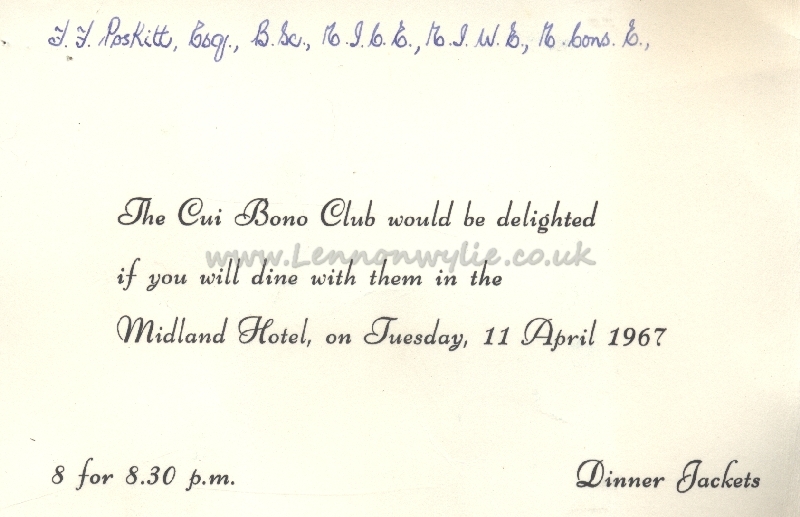 F. F. Poskitt, Esq., B.Sc., M.I.C.E., M.I.W.E., M.Cons.E.,
The Cui Bono Club would be delighted
www.Lennonwylie.co.uk
if you will dine with them in the
Midland Hotel, on Tuesday, 11 April 1967
8 for 8.30 p.m. Dinner Jackets